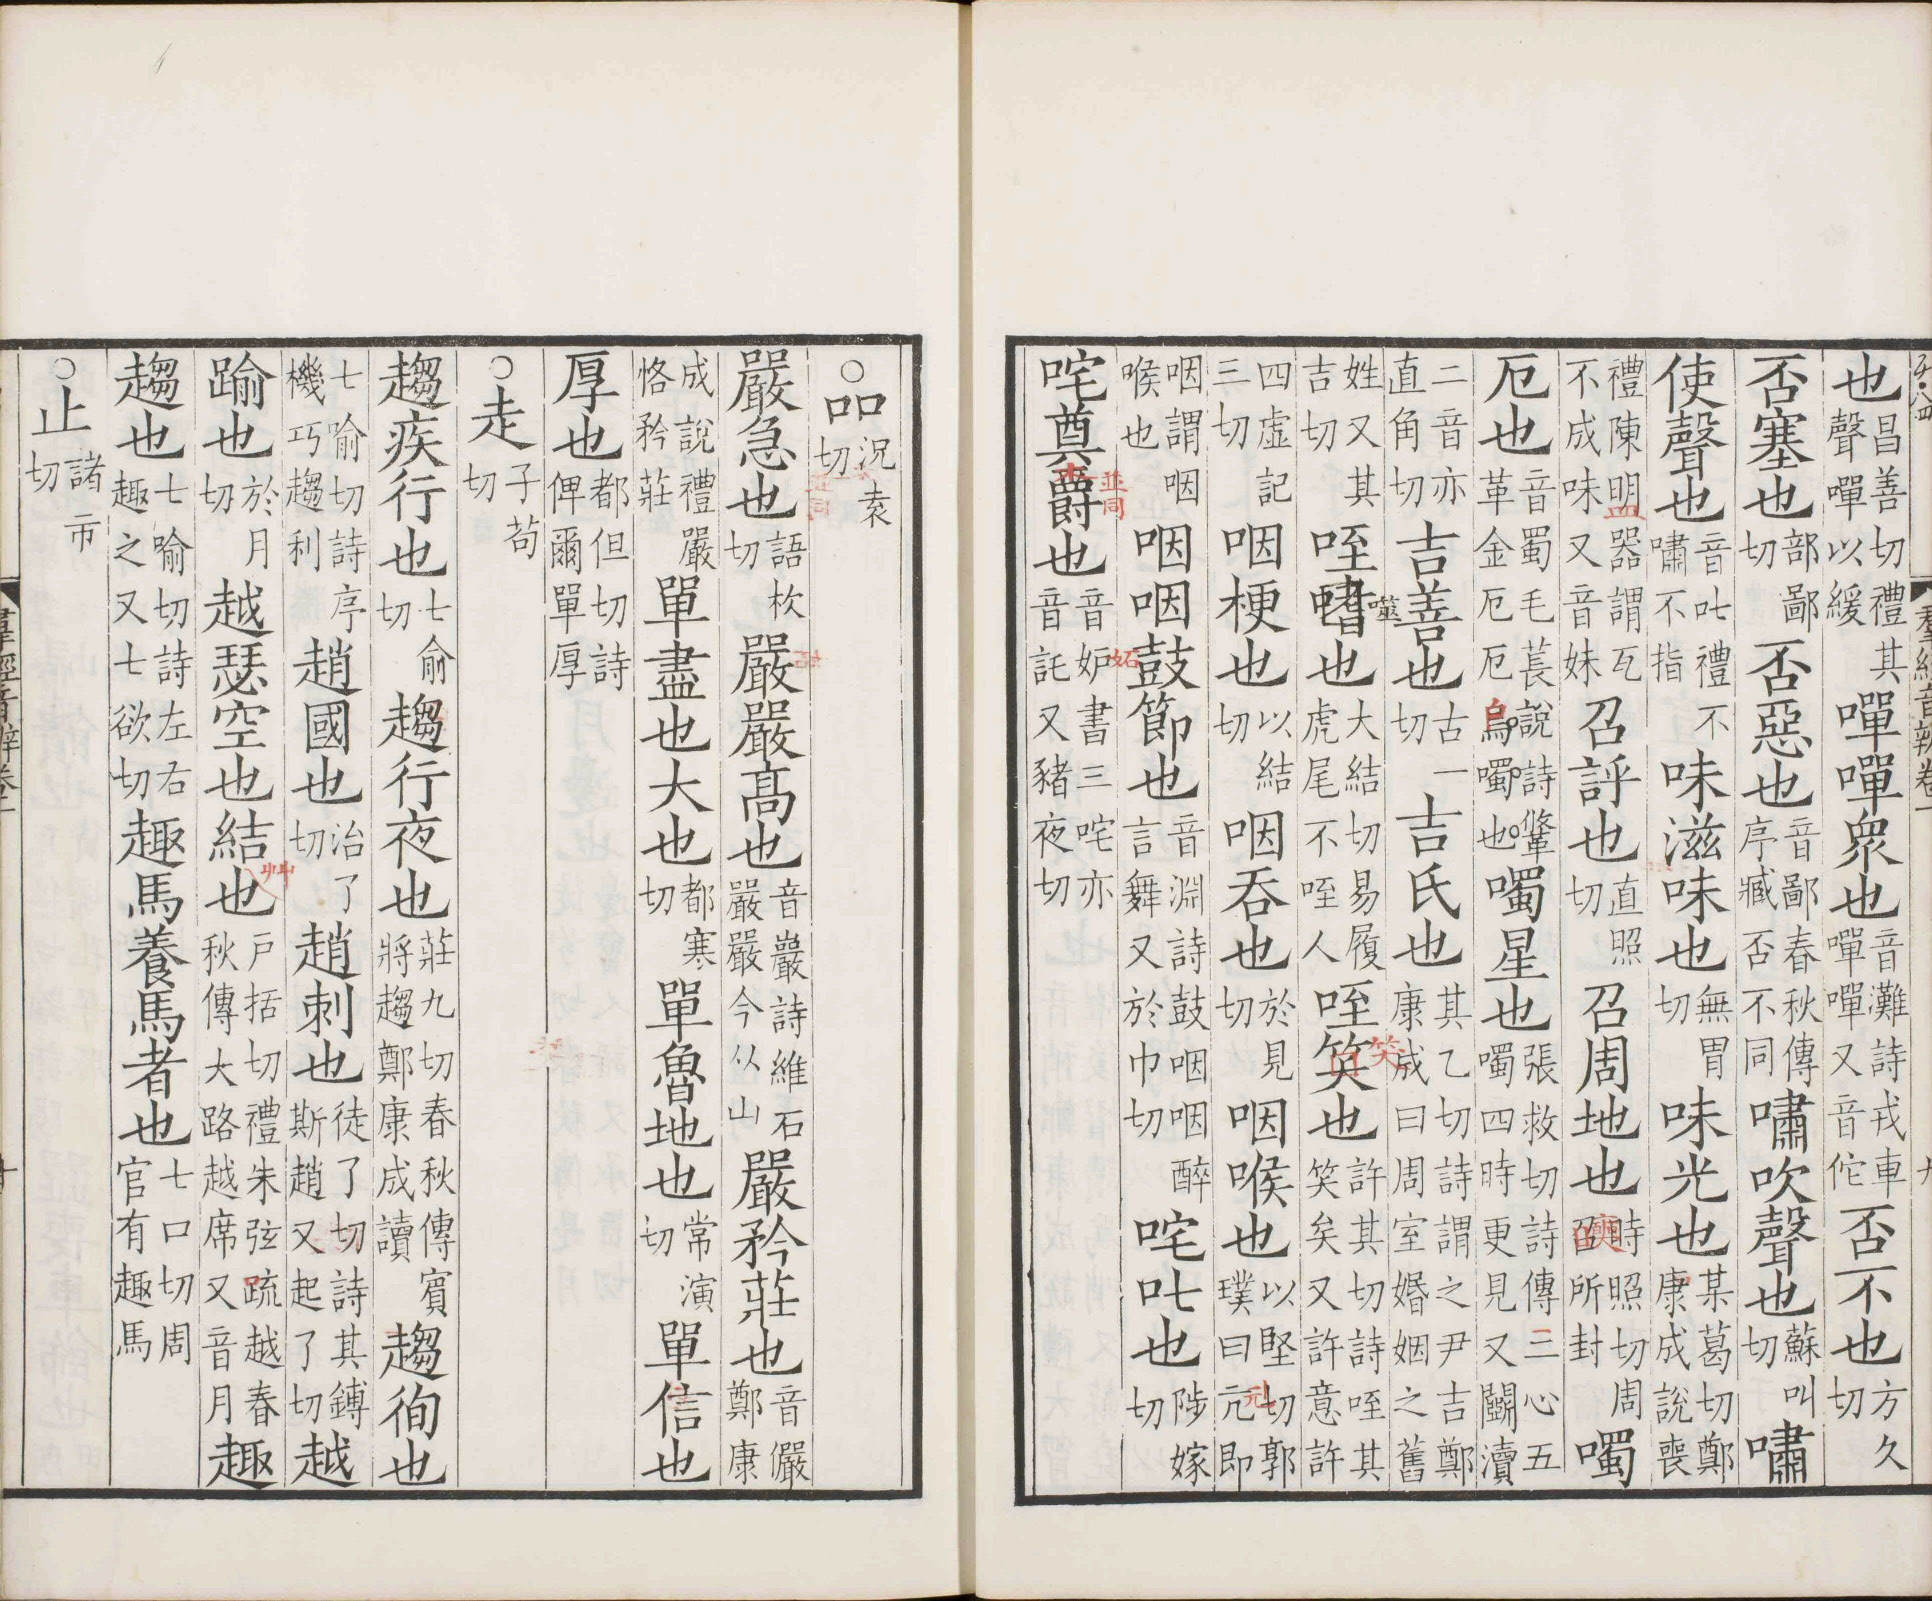 也昌善切禮其聲嘽以緩嘽嘽衆也音灘詩戎車嘽嘽又音佗否不也方久切
否塞也部鄙切否惡也音鄙春秋傳序臧否不同嘯吹聲也蘇叫切嘯
使聲也音叱禮不嘯不指味滋味也無胃切味光也某葛切鄭康成說喪
禮陳明器謂瓦不成味又音妹召評也直照切召周地也時照切周召所封噣
厄也音蜀毛萇說詩鞗革金厄厄烏噣也噣星也張救切詩傳三心五噣四時更見又鬭瀆
二音亦直角切吉善也古一切吉氏也其乙切詩謂之尹吉鄭康成曰周室婚姻之舊
姓又其吉切咥噬嗜也大結切易履虎尾不咥人咥笑笶也許其切詩咥其笑矣又許意許
四虛記三切咽梗也以結切咽吞也於見切咽喉也以堅切郭璞曰亢即
咽謂咽喉也咽咽鼓節也音淵詩鼓咽咽醉言舞又於巾切咤叱也陟嫁切
咤奠爵也音妒書三咤亦音託又豬夜切
羣經音辨卷二 九
○吅況袁切
嚴急也語杴切嚴嚴高也音巖詩維石嚴嚴今从山嚴矜莊也音儼鄭康
成說禮嚴恪矜莊單盡也大也都寒切單魯地也常演切單信也
厚也都但切詩俾爾單厚
○走子苟切
趨疾行也七俞切趨行夜也莊九切春秋傳賓將趨鄭康成讀趨徇也
七喻切詩序機巧趨利趙國也治了切趙刺也徒了切詩其鎛斯趙又起了切越
踰也於月切越瑟空也結也戶括切禮朱弦疏越春秋傳大路越席又音月趣
趨也七喻切詩左右趣之又七欲切趣馬養馬者也七口切周官有趣馬
○止諸市切
羣經音辨卷二 十